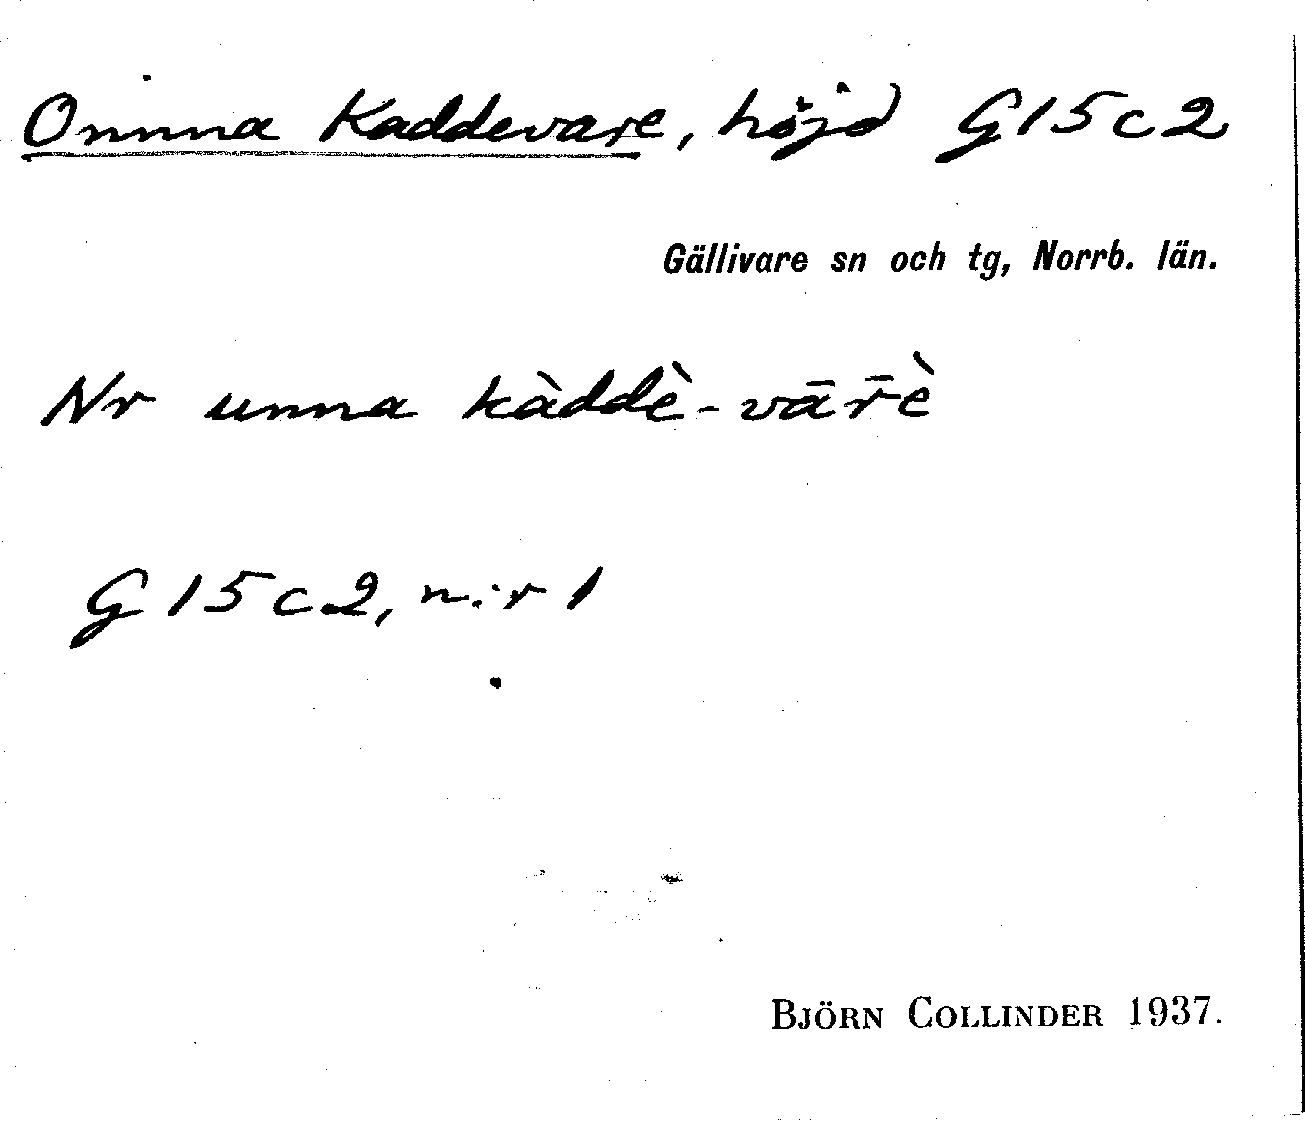 Onnna Kaddevare, höjd G15c2
Gällivare sn och tg, Norrb. län.
Nr unna kàddè-vār̄è
G15c2, n:r 1
BJÖRN COLLINDER 1937.